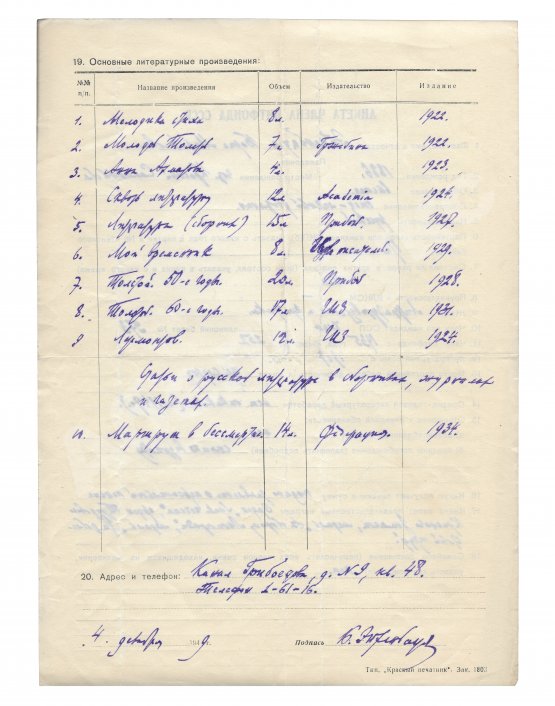 19. Основные литературные произведения:
№№ п/п. Название произведения Объем Издательство Издание
1. Мелодика стиха 8л. 1922.
2. Молодой Толстой 7л Гржебин 1922.
3. Анна Ахматова 4л. 1923.
4. Сквозь литературу 12л Academia 1924.
5. Литература (сборник) 15л Прибой. 1927.
6. Мой временник 8л. писателей 1929.
7. Толстой. 50-е годы. 20л Прибой 1928.
8. Толстой. 60-е годы. 17л ГИЗ 1931.
9 Лермонтов. 12л ГИЗ 1924.
Статьи о русской литературе в сборниках, журналах
и газетах.
10. Маршрут в бессмертие. 14л. Федерация. 1934.
20. Адрес и телефон: Канал Грибоедова, д. №9, кв. 48.
Телефон 2-61-16.
4. декабря 19 9. Подпись Б. Эйхенбаум
Тип. „Красный печатник“. Зак. 180